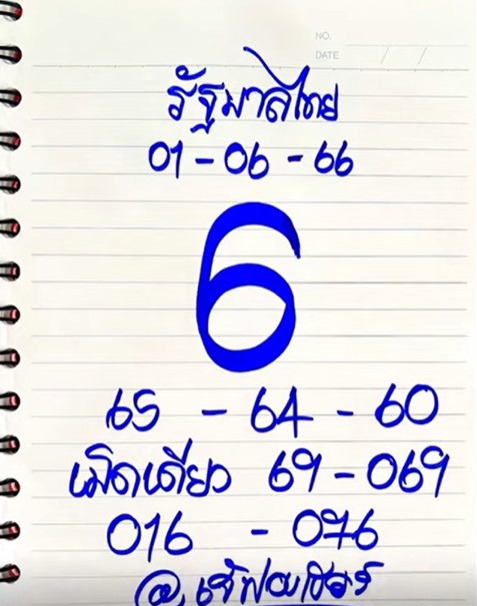 NO.
DATE / /
รัฐบาลไทย
01-06-66
6
65 - 64 - 60
เม็ดเดียว 69-069
016 - 076